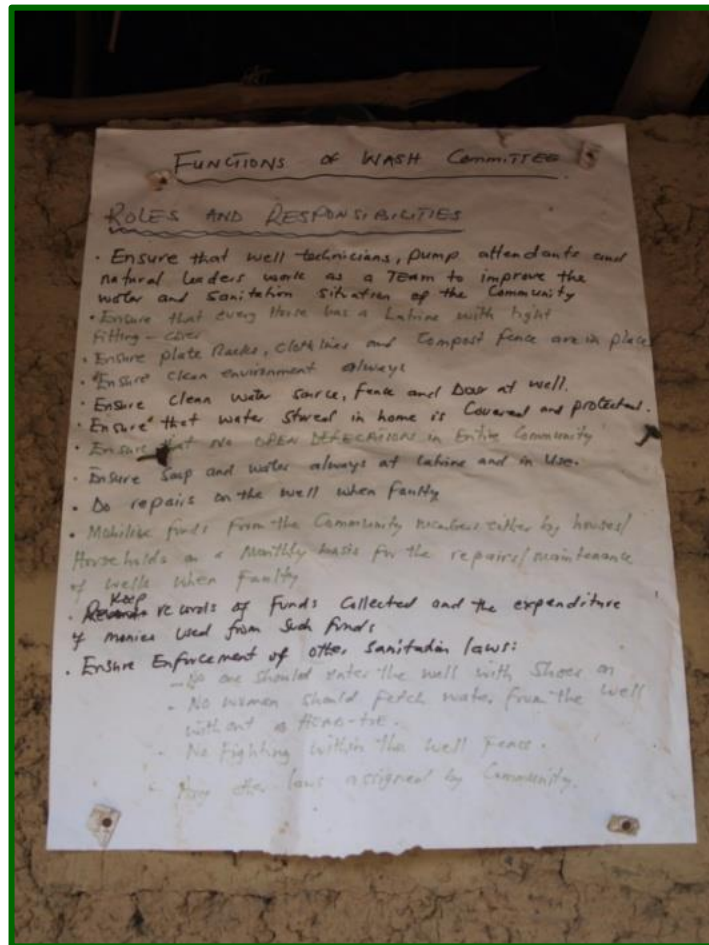 FUNCTIONS OF WASH COMMITTEE
ROLES AND RESPONSIBILITIES
• Ensure that well technicians, pump attendants and
natural leaders work as a TEAM to improve the
water and sanitation situation of the Community
• Ensure that every House has a Latrine with tight
fitting-cover
• Ensure plate Racks, Cloth lines and Compost fence are in place
• "Ensure" clean environment always
• Ensure Clean water source, fence and Door at well.
• Ensure" that water stored in home is Covered and protected.
• Ensure that no OPEN DEFECATIONS in Entire Community
• Ensure Soap and water always at Latrine and in Use.
• Do repairs on the well when faulty
• Mobilise funds from the Community members either by houses/
Households on a Monthly basis for the repairs/maintenance
of wells when Faulty
• Keep records of Funds Collected and the expenditure
of monies used from such funds
• Ensure Enforcement of other sanitation laws:
- No one should enter the well with Shoes on
- No women should fetch water from the well
without a HEAD-TIE.
- No Fighting within the Well Fence.
- Any other laws assigned by Community.